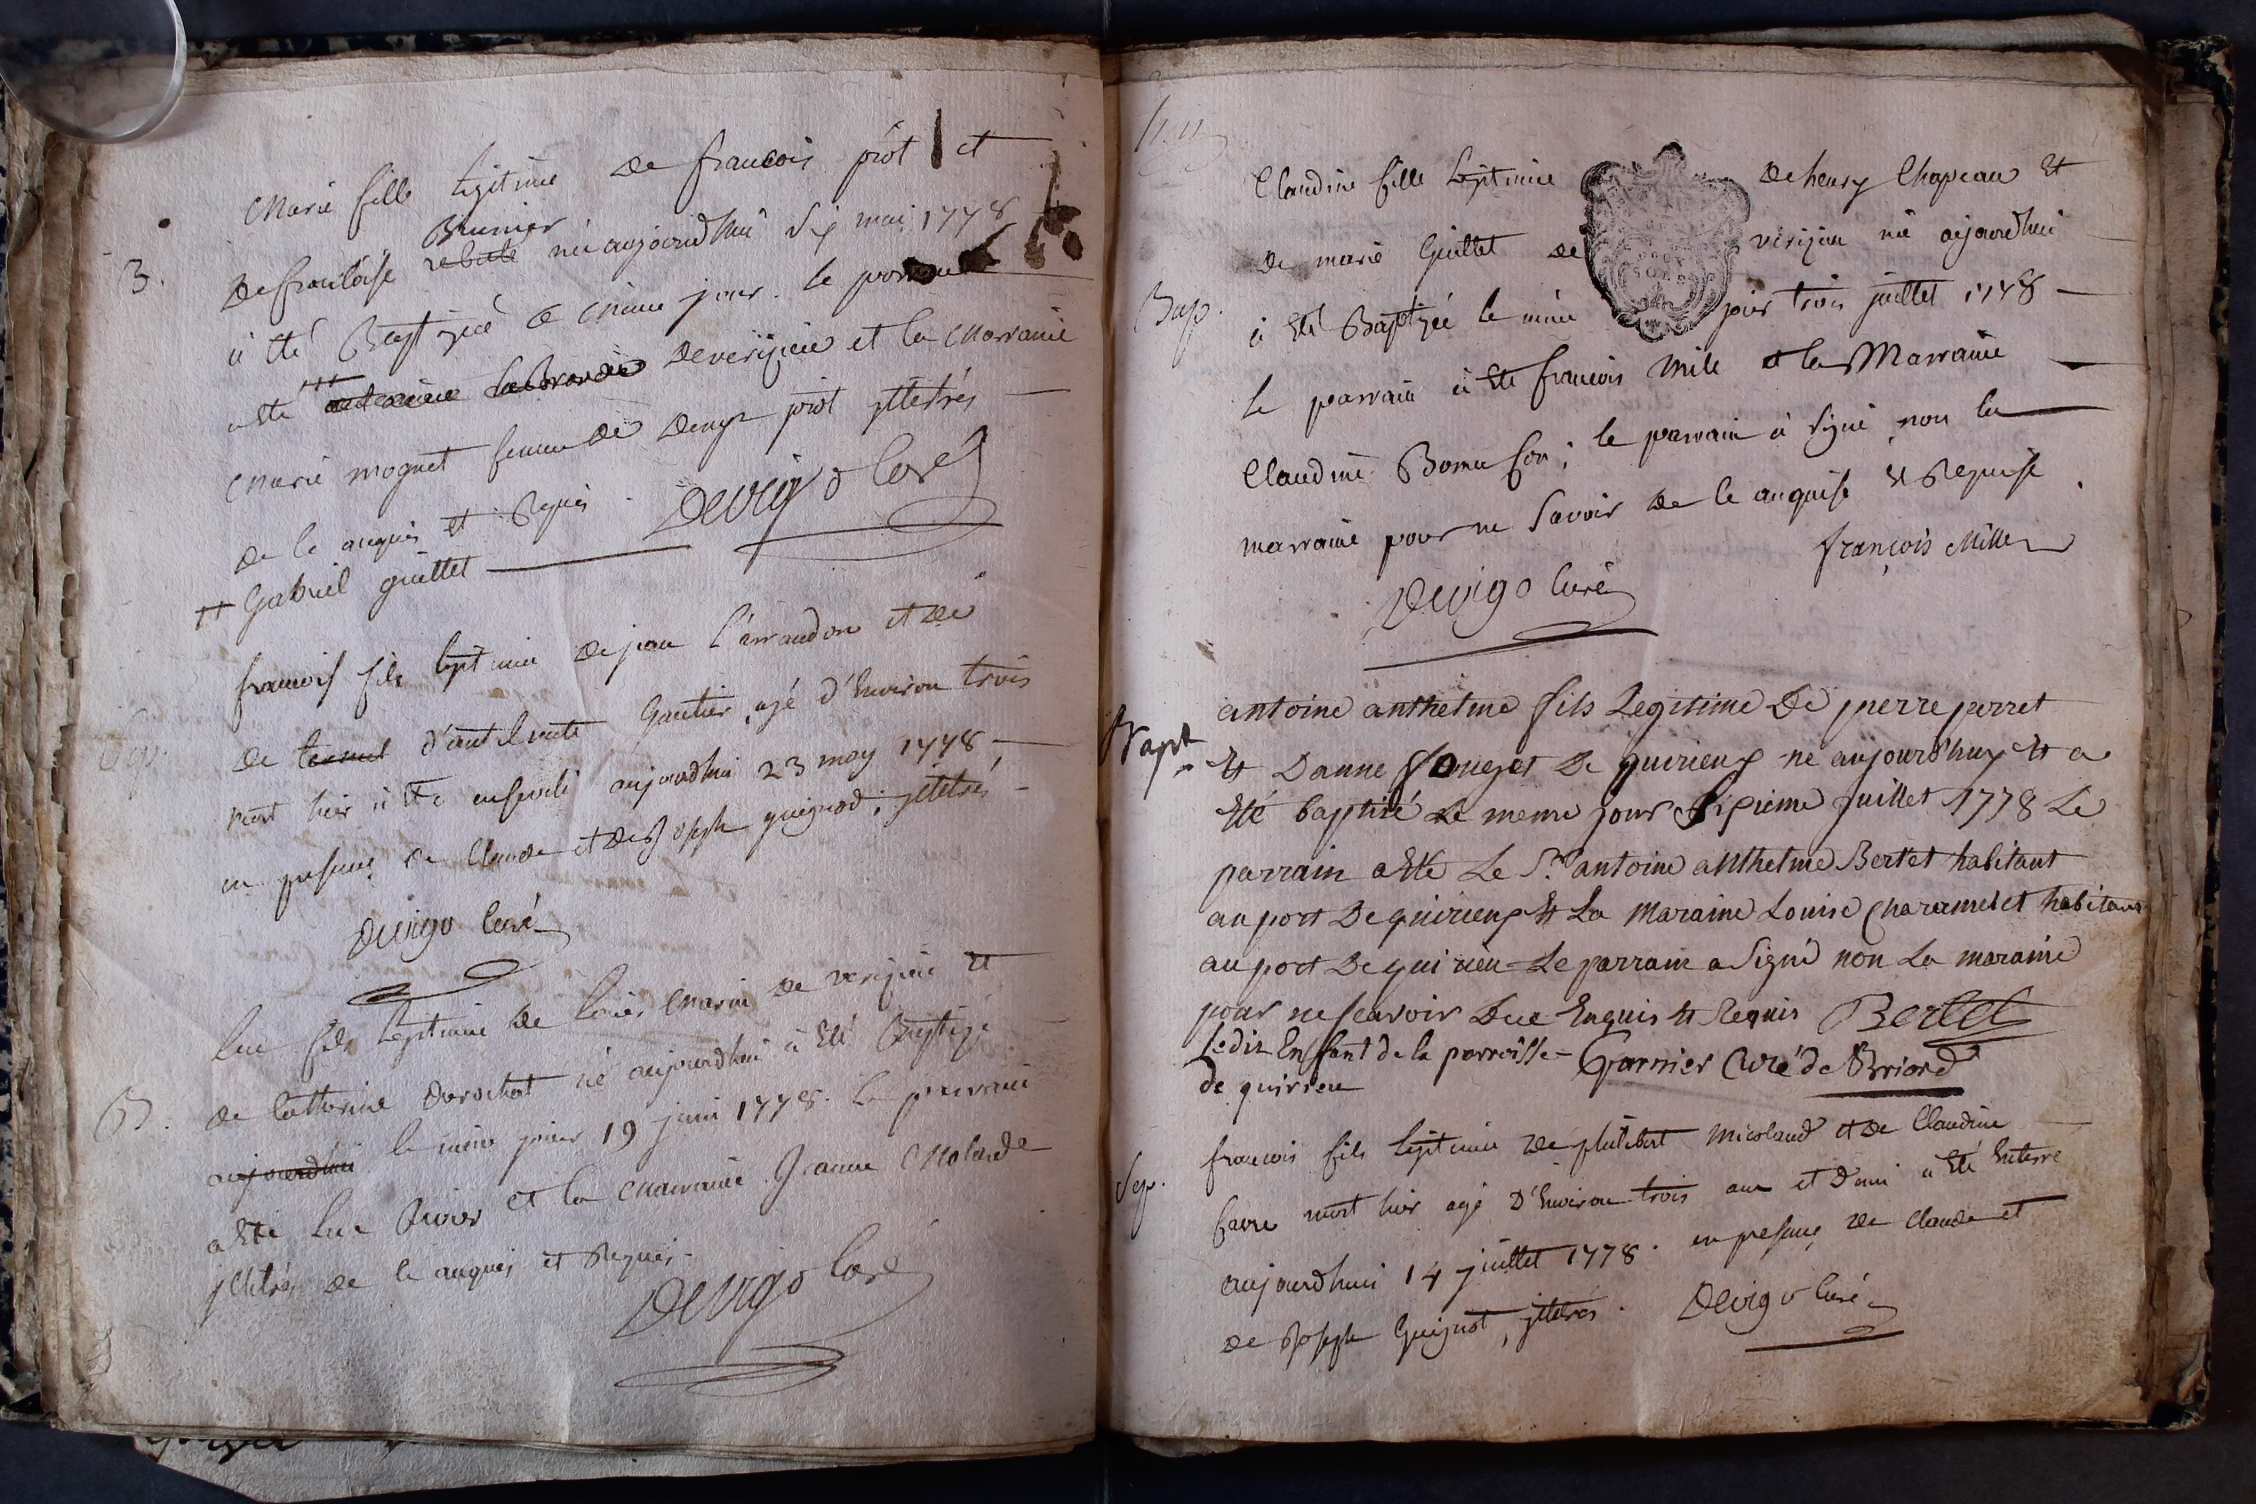 Marie fille legitime de francois piot et
Brunier
3. De francoise rebute née aujourdhui six mai 1778
à été Baptizée ce même jour. le parrain
a été antoine Labrande De verizieu et la Marraine
Marie moguet femme De Denys piot illetrés
de ce anquis et Requis. Devigo Curé
++ Gabriel guillet
francois fils legitime de jean l'arraudon et de
Sep. de d'antelmette Gautier, agé d'Environ trois
mort hier à été enseveli aujourdhui 23 may 1778
en presence de Claude et de Joseph guignod, illetrés,
Devigo Curé
Luc fils legitime De Louis Marin de verizieu et
B. de Catherine Derochat né aujourdhui à été Baptizé
aujourdhui le même jour 19 juin 1778. le parrain
a été Luc Quivier et la Marraine Jeanne Molard
illetrés de ce anquis et Requis.
Devigo Curé
Claudine fille legitime de henry Chapeau et
de marie Guillet de verizieu née aujourdhui
Bap. à été Baptizée le même jour trois juillet 1778
le parrain à été francois Mile et la Marraine
Claudine ; le parrain à signé non la
marraine pour ne savoir de ce anquise et Requise.
françois Mille
Devigo Curé
antoine anthelme fils Legitime De pierre perret
Bapt. Et Danne De quirieux né aujourdhuy Et a
Eté baptisé Le meme jour Sixieme juillet 1778 Le
parrain a Eté Le Sr antoine anthelme Bertet habitant
au port De quirieux Et La Maraine Louise Charamelet habitant
au port De quirieu = Le parrain a Signé non La maraine
pour ne scavoir Dece Enquis Et Requis Bertet
Ledit Enfant de la parroisse = Garnier Curé de Briord
de quirieu
francois fils legitime de philibert Micolaud et de Claudine
Sep. favre mort hier agé D'Environ trois ans et Demi à été Enterré
aujourdhui 14 juillet 1778. en presence de Claude et
de Joseph Guignot, illetrés. Devigo Curé